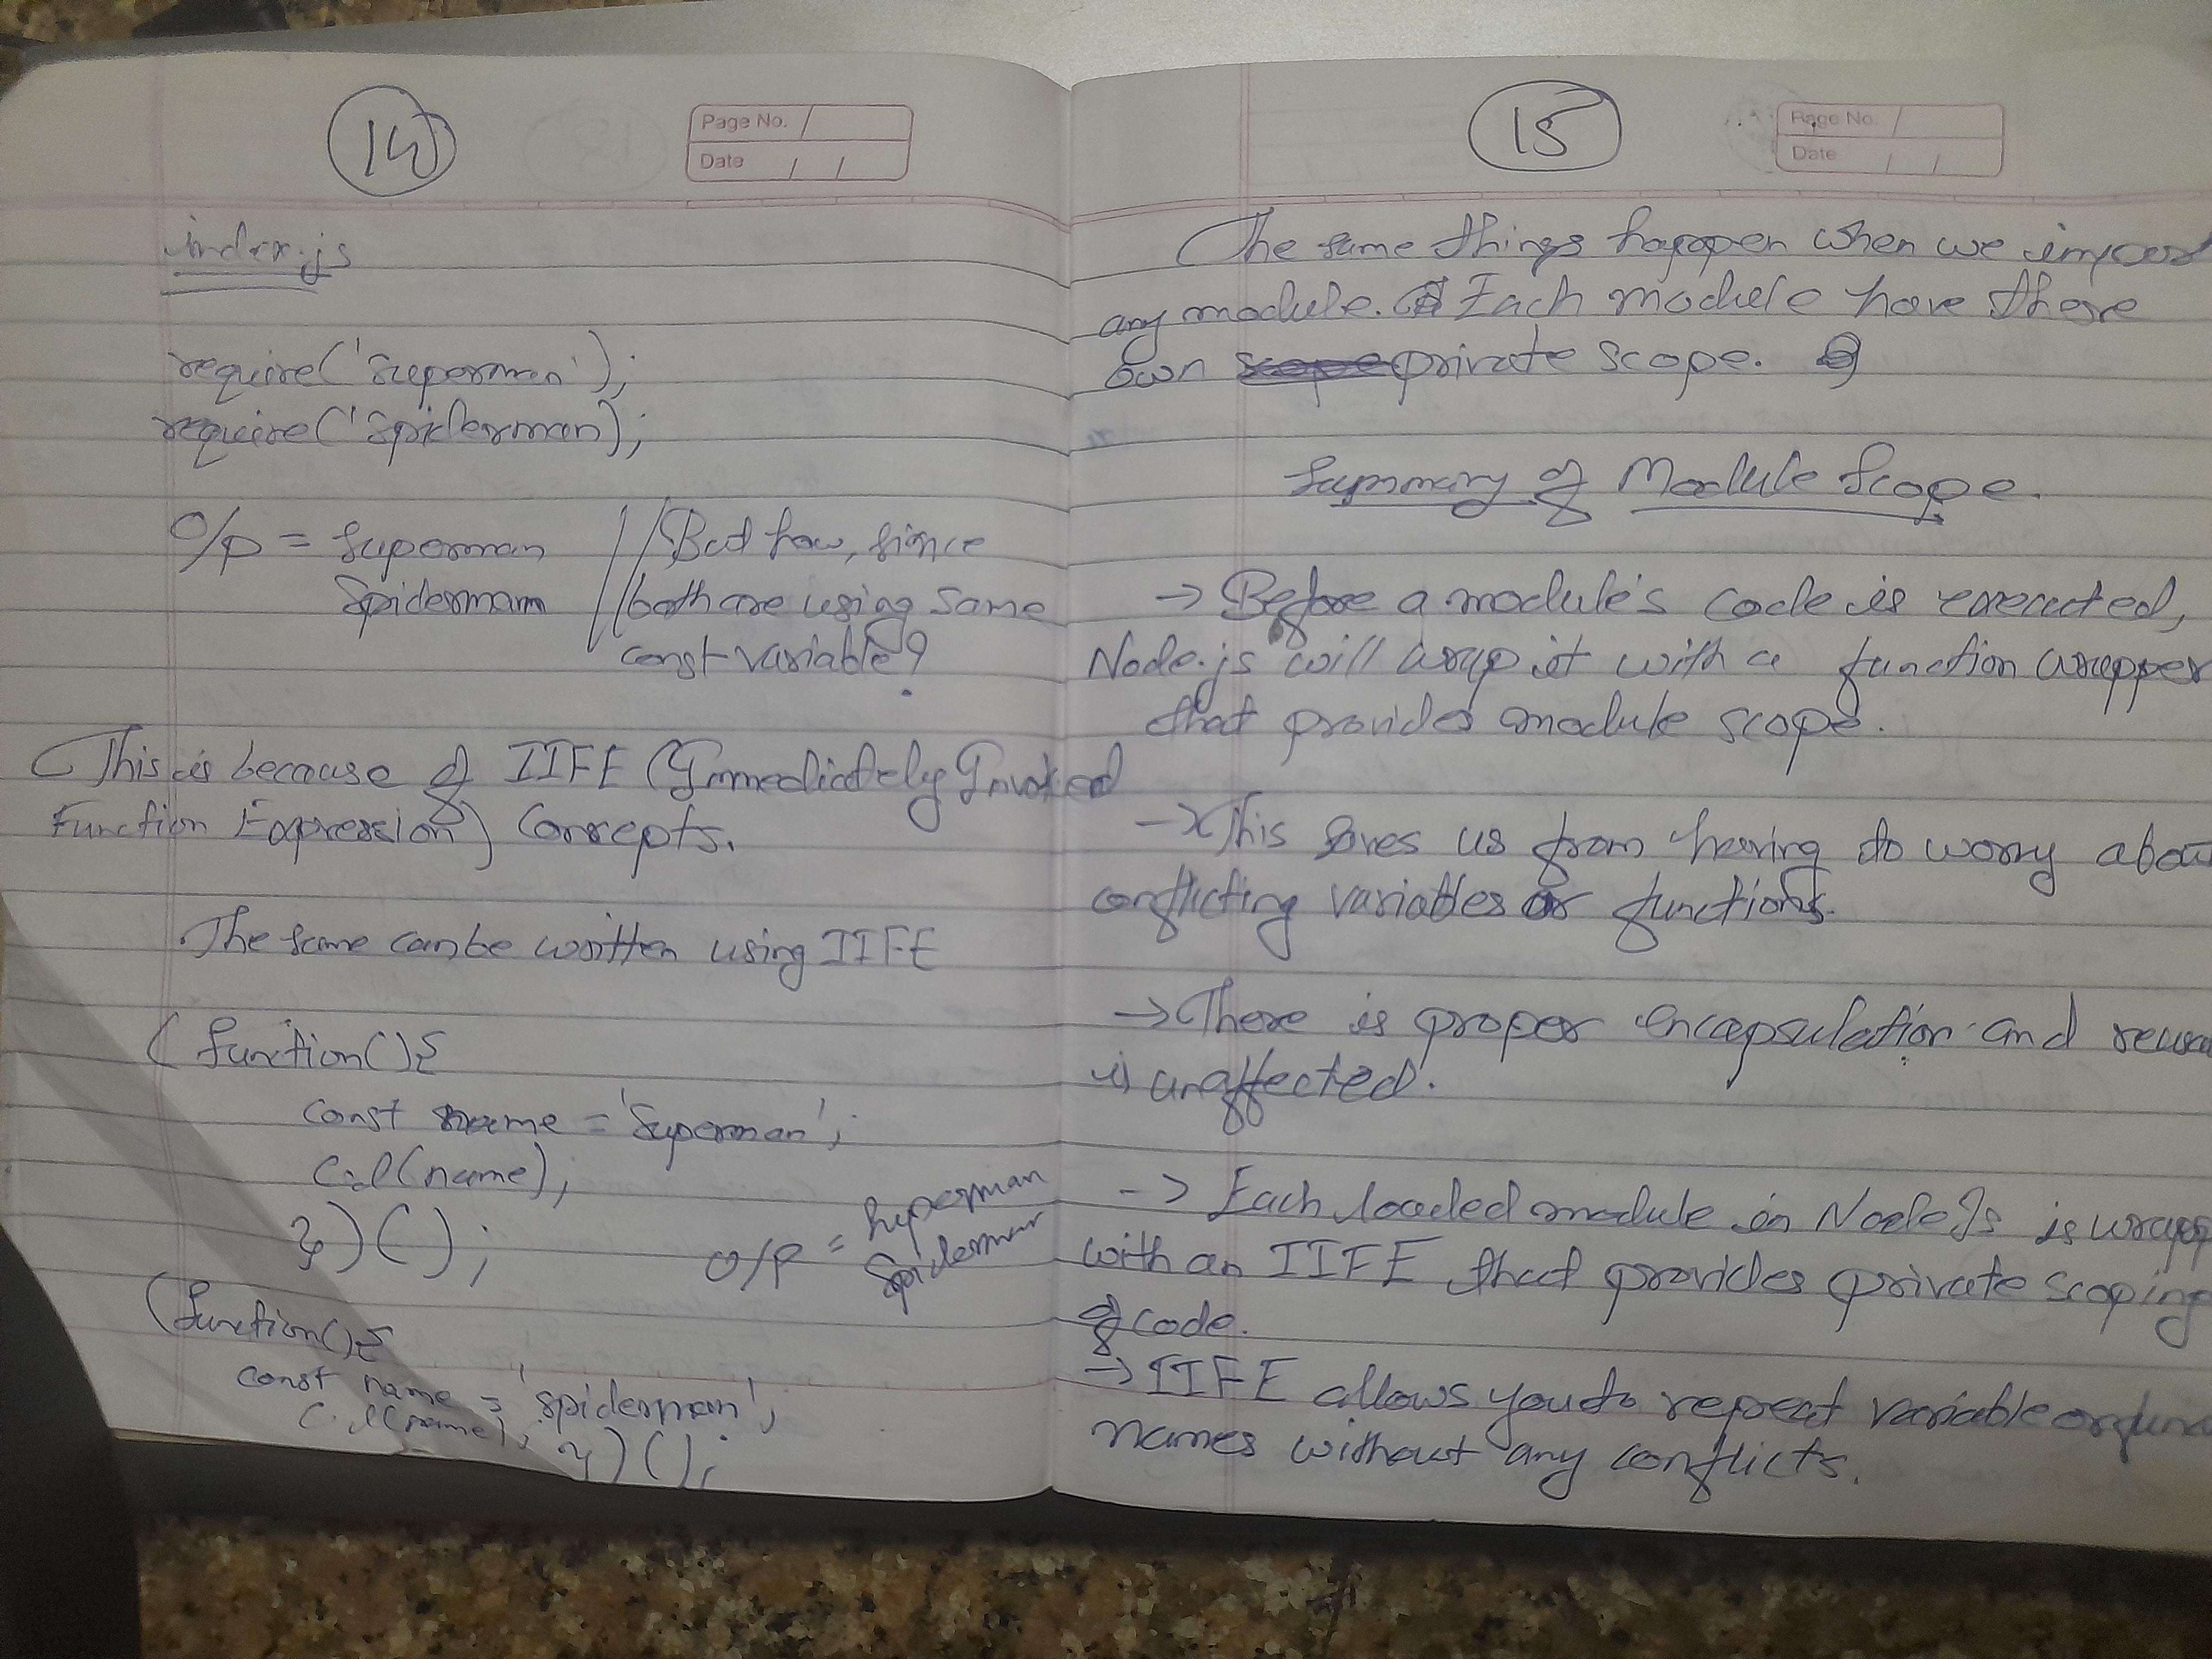 14
Page No.
Date
index.js
require('Superman');
require('Spiderman);
O/p = Superman // But how, since
Spiderman // both are using same
const variable?
This is because of IIFE (Immediately Invoked
Function Expression) Concepts.
The same can be written using IIFE
(function(){
const name = 'Superman';
C.l(name);
})();
o/p = Superman
Spiderman
(function(){
const name = 'spiderman';
C.l(name);
})();
15
Page No.
Date
The same things happen when we import
any module. Each module have there
own private scope.
Summary of Module Scope.
-> Before a module's code is executed,
Node.js will wrap it with a function wrapper
that provides module scope.
-> This saves us from having to worry abou
conflicting variables or functions.
-> There is proper encapsulation and reusa
is unaffected.
-> Each loaded module in NodeJs is wrapp
with an IIFE that provides private scoping
of code.
-> IIFE allows you to repeat variable or func
names without any conflicts.